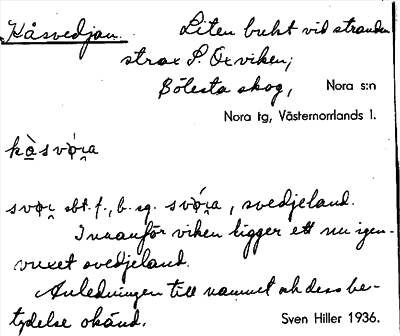 Kåsvedjan. Liten bukt vid stranden
strax S. Oxviken;
Bölesta skog, Nora s:n
Nora tg, Västernorrlands l.
svǫi̯ sbt. f., b. sg. , svedjeland.
Innanför viken ligger ett nu igen-
vuxet svedjeland.
Anledningen till namnet och dess be-
tydelse okänd. Sven Hiller 1936.